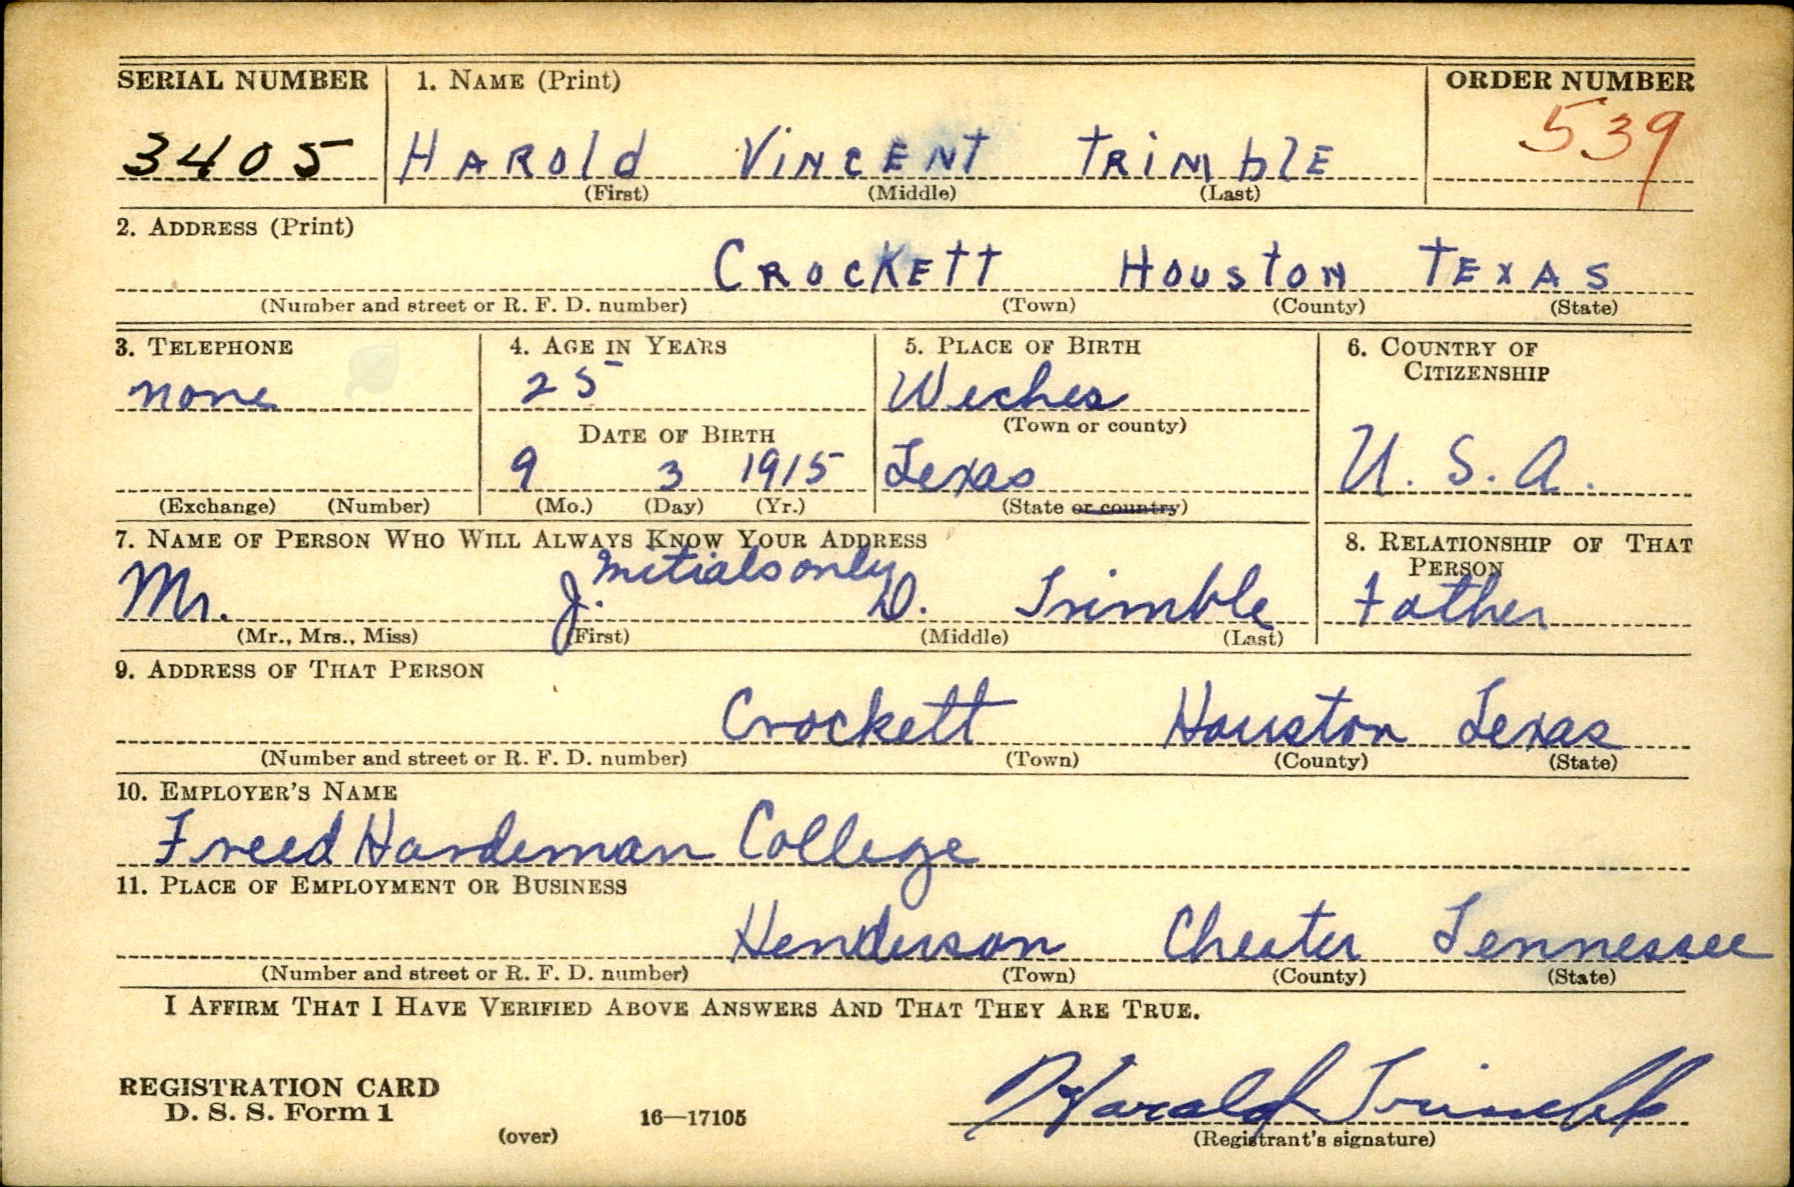 SERIAL NUMBER 1. NAME (Print) ORDER NUMBER
3405 HAROLD VINCENT TRIMBLE 539
(First) (Middle) (Last)
2. ADDRESS (Print)
CROCKETT HOUSTON TEXAS
(Number and street or R. F. D. number) (Town) (County) (State)
3. TELEPHONE 4. AGE IN YEARS 5. PLACE OF BIRTH 6. COUNTRY OF
CITIZENSHIP
none 25 Weches
(Town or county)
DATE OF BIRTH
9 3 1915 Texas U. S. A.
(Exchange) (Number) (Mo.) (Day) (Yr.) (State or country)
7. NAME OF PERSON WHO WILL ALWAYS KNOW YOUR ADDRESS 8. RELATIONSHIP OF THAT
PERSON
initials only
Mr. J. D. Trimble Father
(Mr., Mrs., Miss) (First) (Middle) (Last)
9. ADDRESS OF THAT PERSON
Crockett Houston Texas
(Number and street or R. F. D. number) (Town) (County) (State)
10. EMPLOYER'S NAME
Freed Hardeman College
11. PLACE OF EMPLOYMENT OR BUSINESS
Henderson Chester Tennessee
(Number and street or R. F. D. number) (Town) (County) (State)
I AFFIRM THAT I HAVE VERIFIED ABOVE ANSWERS AND THAT THEY ARE TRUE.
REGISTRATION CARD
D. S. S. Form 1 16—17105
(over)
Harold Trimble
(Registrant's signature)